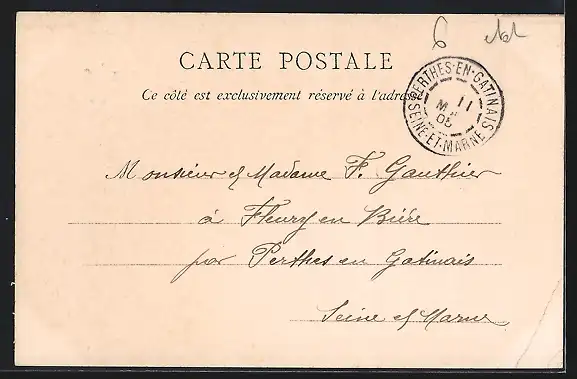 6
CARTE POSTALE
Ce côté est exclusivement réservé à l'adresse
PERTHES-EN-GATINAIS
11
05
SEINE-ET-MARNE
Monsieur et Madame F. Gauthier
à Fleury en Bière
par Perthes en Gatinais
Seine et Marne